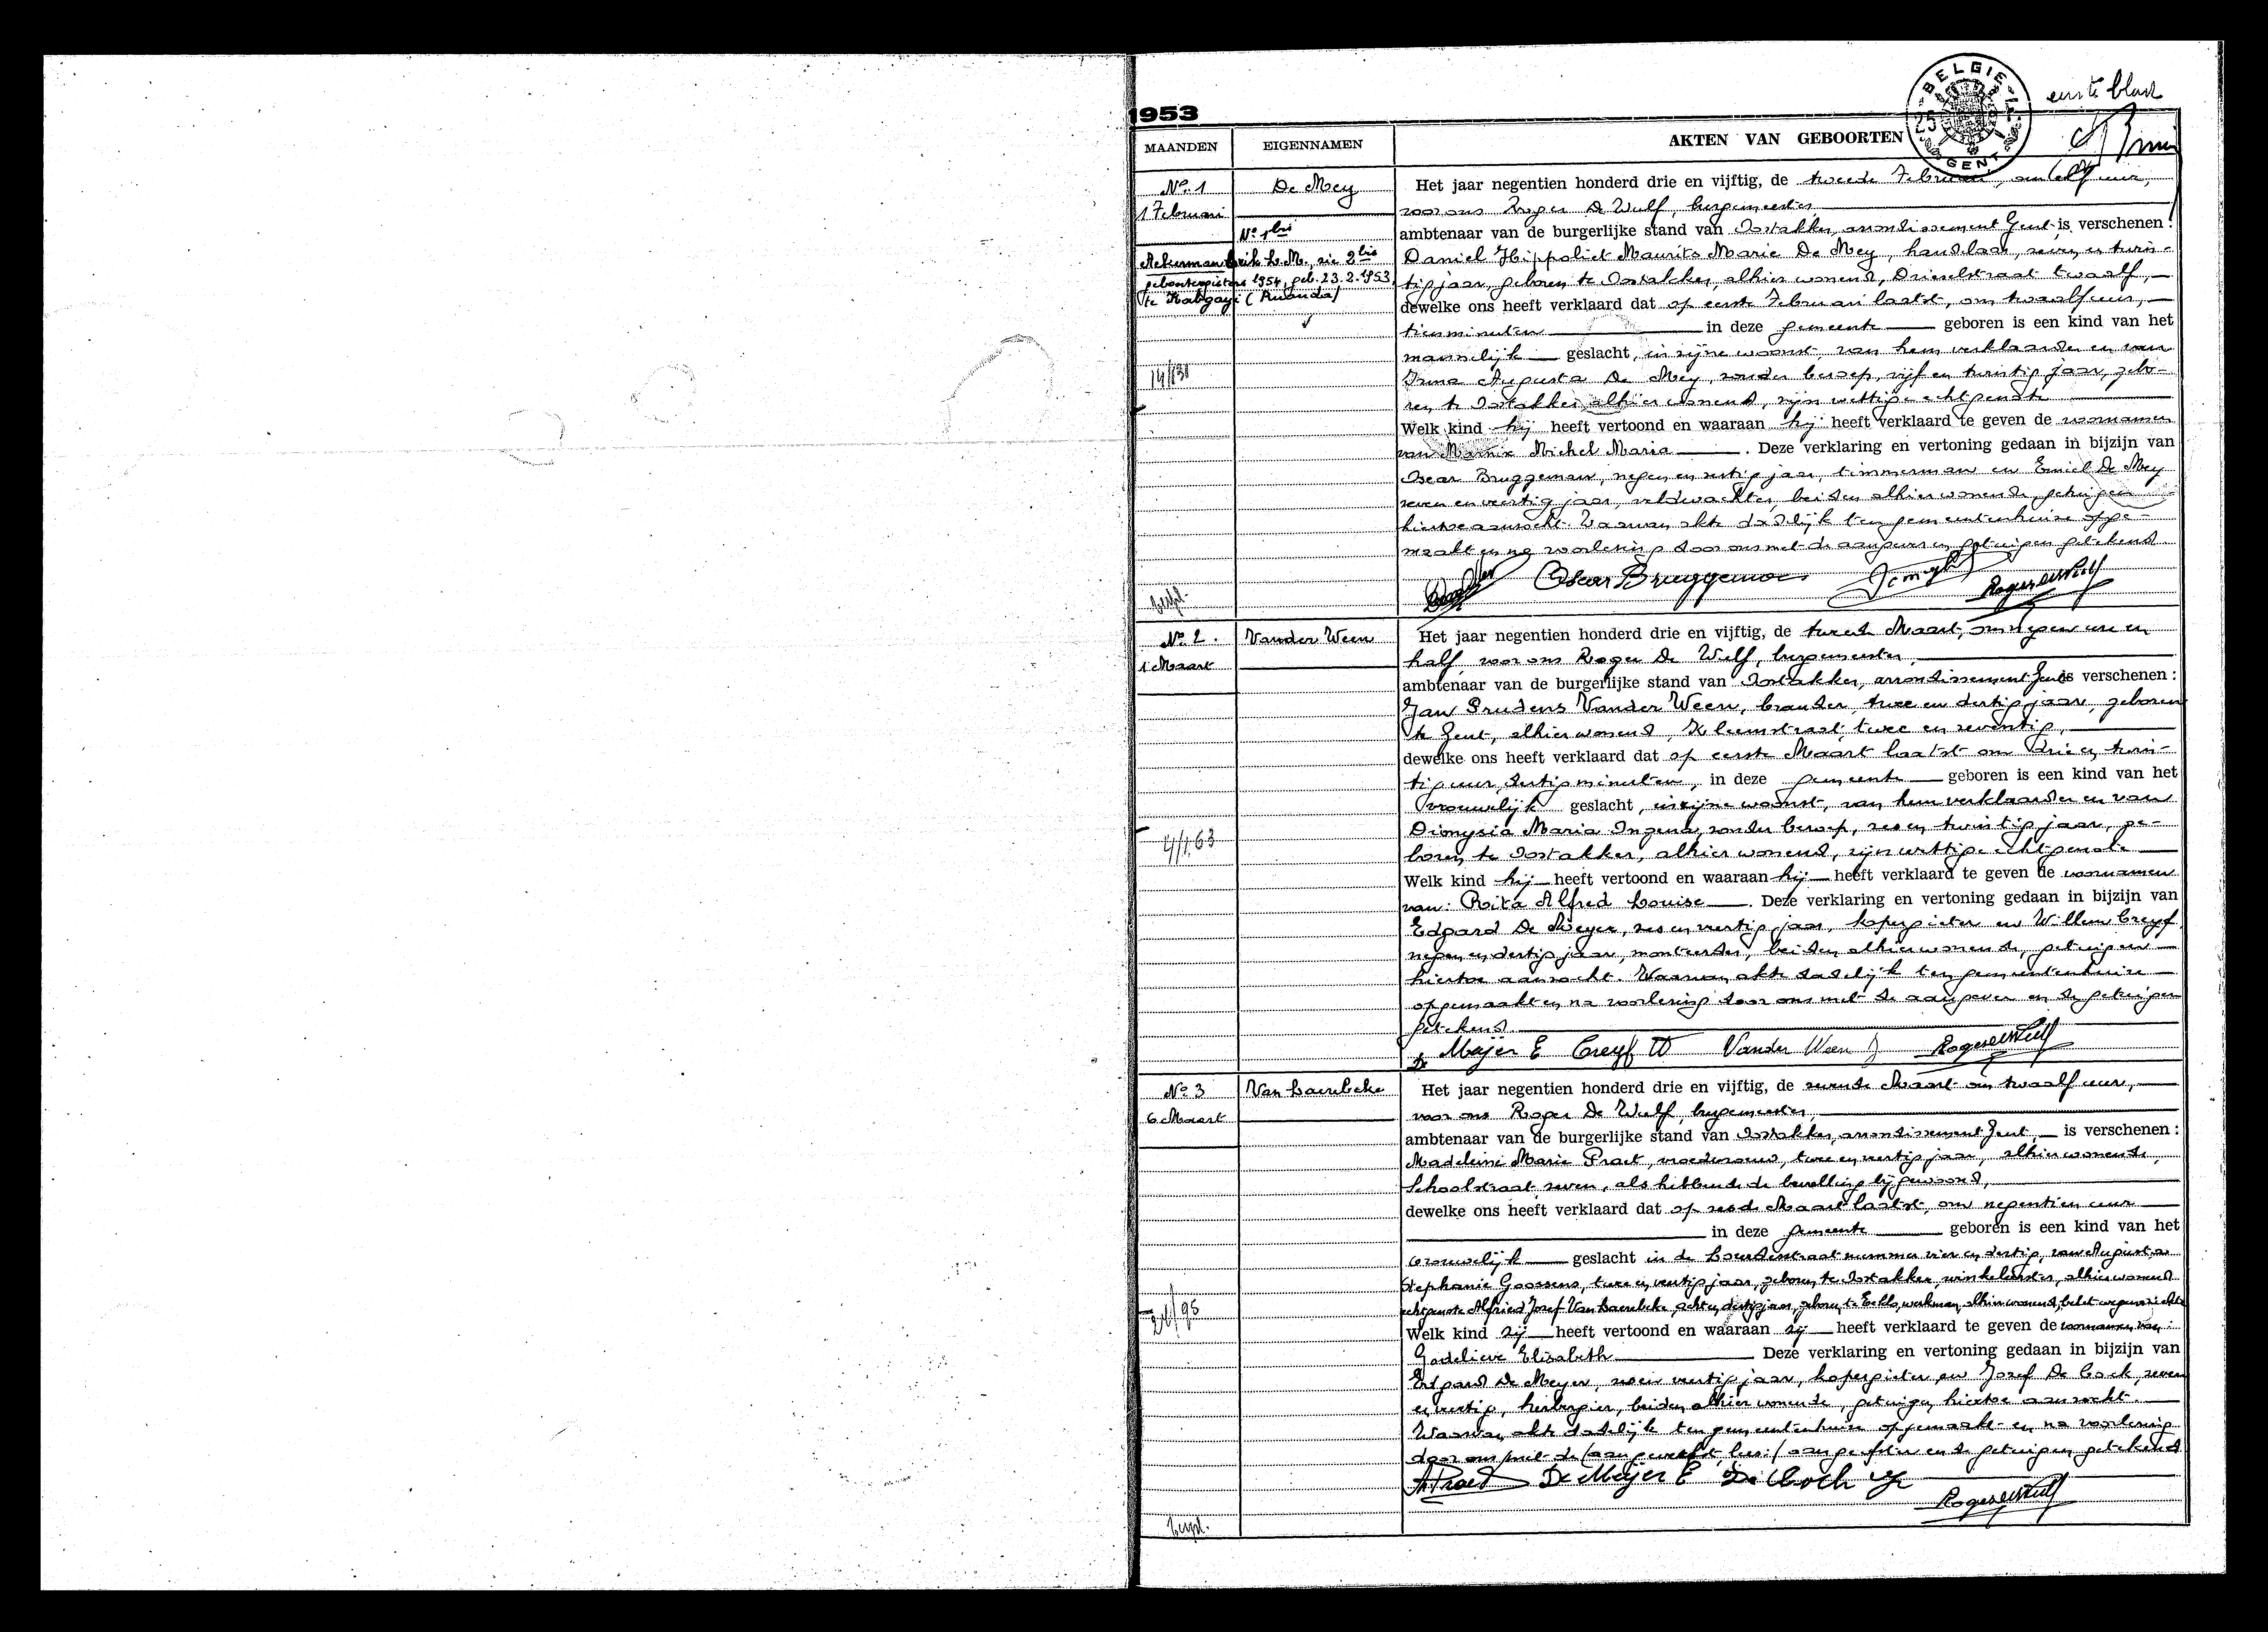 1953
BELGIE
GENT
eerste blad
MAANDEN EIGENNAMEN AKTEN VAN GEBOORTEN
No. 1 De Mey
1 Februari
No 1bis
Ackerman Erik L. M., zie 2bis
geboorteregister 1954, geb. 23.2.1953
te Kabgayi (Ruanda)
Het jaar negentien honderd drie en vijftig, de tweede Februari, om elf uur,
voor ons Roger De Wulf, burgemeester,
ambtenaar van de burgerlijke stand van Oostakker, arrondissement Gent is verschenen:
Daniel Hippoliet Maurits Marie De Mey, handelaar, zeven en twin-
tig jaar, geboren te Oostakker, alhier wonend, Drieselstraat twaalf,
dewelke ons heeft verklaard dat op eerste Februari laatst, om twaalf uur,
tien minuten in deze gemeente geboren is een kind van het
mannelijk geslacht, in zijne woonst, van hem verklaarder en van
Irma Augusta De Mey, zonder beroep, vijf en twintig jaar, gebo-
ren te Oostakker, alhier wonend, zijn wettige echtgenote
Welk kind hij heeft vertoond en waaraan hij heeft verklaard te geven de voornamen
van Marnix Michel Maria . Deze verklaring en vertoning gedaan in bijzijn van
Oscar Bruggeman, negen en veertig jaar, timmerman en Emiel De Mey
zeven en veertig jaar, veldwachter, beiden alhier wonende, getuigen
hiertoe aanzocht. Waarvan akte dadelijk ten gemeentenhuize opge-
maakt en na voorlezing door ons met de aangever en getuigen getekend.
Oscar Bruggeman Roger De Wulf
No. 2. Vander Ween
1 Maart
Het jaar negentien honderd drie en vijftig, de tweede Maart, om negen ure en
half, voor ons Roger De Wulf, burgemeester,
ambtenaar van de burgerlijke stand van Oostakker, arrondissement Gent is verschenen:
Jan Prudens Vander Ween, brander, twee en dertig jaar, geboren
te Gent, alhier wonend, Kleemstraat, twee en zeventig,
dewelke ons heeft verklaard dat op eerste Maart laatst om drie en twin-
tig uur, dertig minuten, in deze gemeente geboren is een kind van het
vrouwelijk geslacht, in zijne woonst, van hem verklaarder en van
Dionysia Maria Ingens, zonder beroep, zes en twintig jaar, ge-
boren te Oostakker, alhier wonend, zijn wettige echtgenote
Welk kind hij heeft vertoond en waaraan hij heeft verklaard te geven de voornamen
van: Rita Alfred Louise . Deze verklaring en vertoning gedaan in bijzijn van
Edgard De Meyer, zes en veertig jaar, kopergieter en Willem Creyf
negen en dertig jaar, monteerder, beiden alhier wonende, getuigen
hiertoe aanzocht. Waarvan akte dadelijk ten gemeentenhuize
opgemaakt en na voorlezing door ons met de aangever en de getuigen
getekend
De Meyer E Creyf W Vander Ween J Roger De Wulf
No. 3 Van Laerebeke
6 Maart
Het jaar negentien honderd drie en vijftig, de zevende Maart om twaalf uur,
voor ons Roger De Wulf, burgemeester,
ambtenaar van de burgerlijke stand van Oostakker, arrondissement Gent, is verschenen:
Madeleine Marie Praet, vroedvrouw, twee en veertig jaar, alhier wonende,
Schoolstraat zeven, als hebbende de bevalling bijgewoond,
dewelke ons heeft verklaard dat op zesde Maart laatst, om negentien uur
in deze gemeente geboren is een kind van het
vrouwelijk geslacht in de Lourdesstraat nummer vier en dertig, van Augusta
Stephanie Goossens, twee en veertig jaar, geboren te Oostakker, winkelierster, alhier wonend
echtgenote Alfried Jozef Van Laerebeke, acht en dertig jaar, geboren te Eeklo, werkman, alhier wonend, belet wegens ziekte
Welk kind zij heeft vertoond en waaraan zij heeft verklaard te geven de voornamen van:
Godelieve Elisabeth Deze verklaring en vertoning gedaan in bijzijn van
Edgard De Meyer, zes en veertig jaar, kopergieter en Jozef De Cock, zeven
en veertig, herbergier, beiden alhier wonende, getuigen hiertoe aanzocht.
Waarvan akte dadelijk ten gemeentenhuize opgemaakt en na voorlezing
door ons met de getuigen getekend
M Praet De Meyer E Roger De Wulf